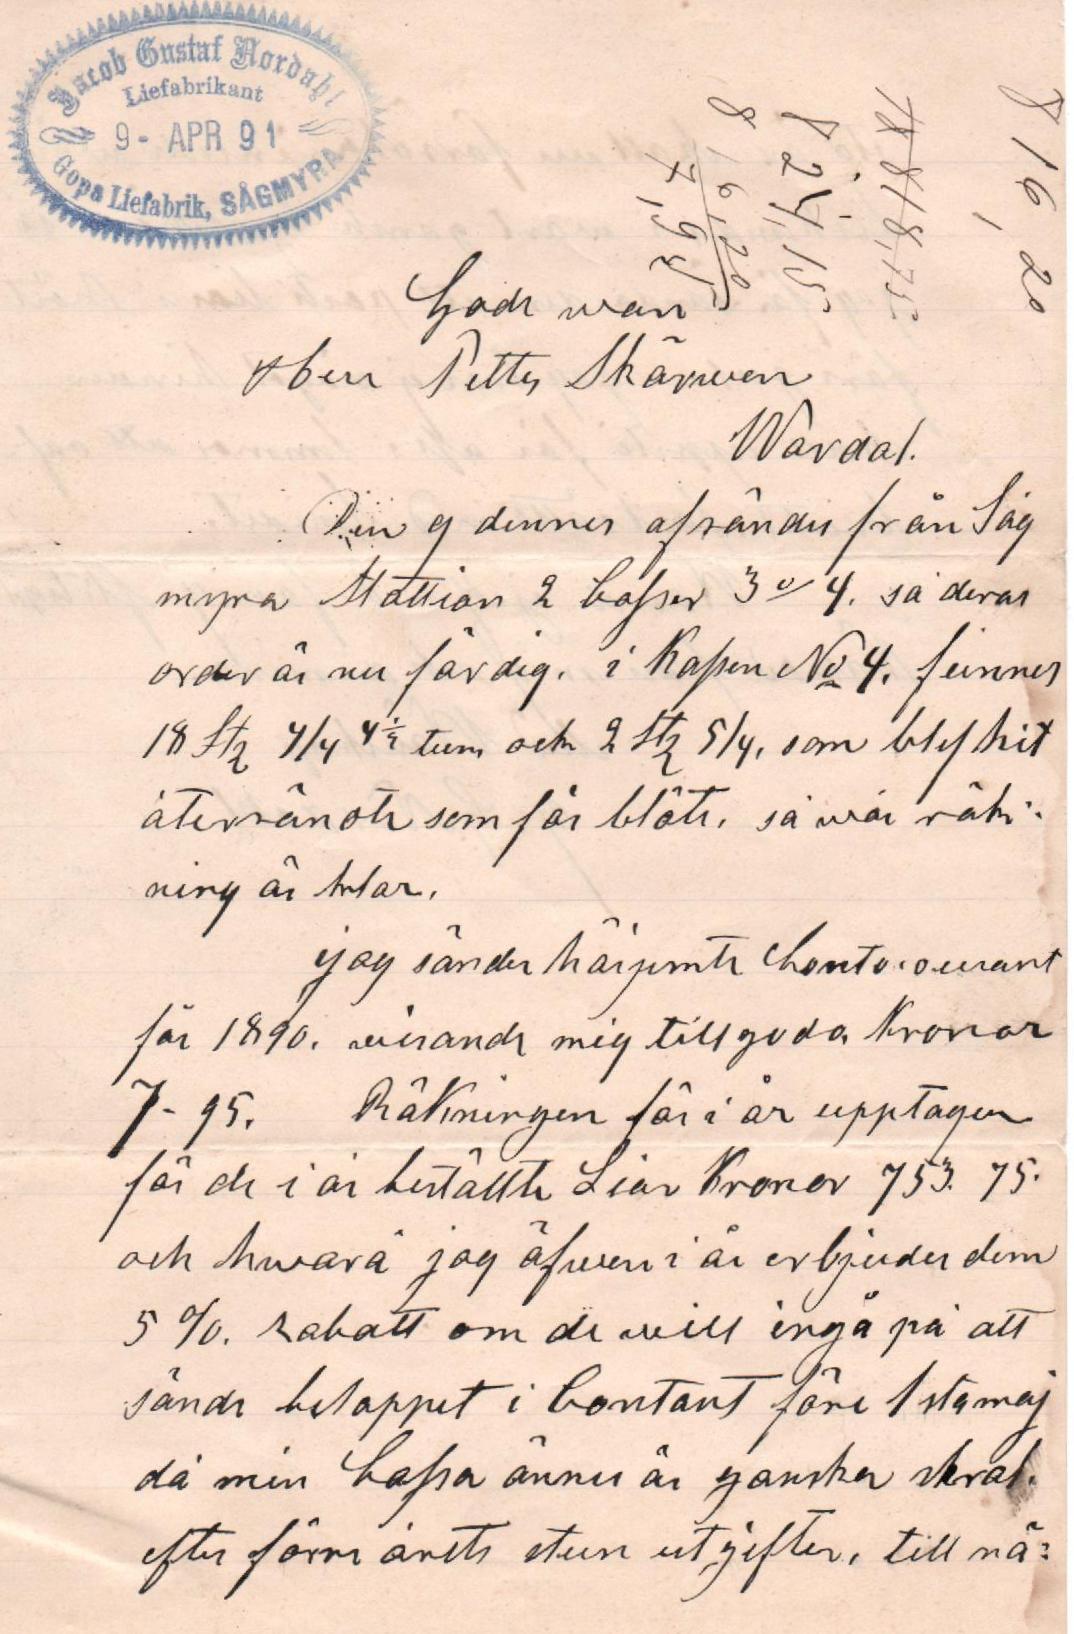 Jacob Gustaf Nordahl
Liefabrikant
9 - APR 91
Gopa Liefabrik, SÅGMYRA
816,20
818,75
824,15
816,20
7,95
Gode wän
Herr Petter Skärwen
Wärdal.
Den 9 dennes afsändes från Såg
myra Stattion 2 Casser 3 o/ 4. så deras
order är nu färdig. i Kassen No 4. finnes
18 Stz 4/4 4½ tum och 2 Stz 5/4, som blef hit
återsände som för blöte. så wår räk-
ning är klar.
jag sänder härjemte Conto courant
för 1890. wisande mig tillgodo Kronor
7-95. Räkningen för i år upptagen
för de i år beställte Liar Kronor 753. 75.
och hwarå jag äfwen i år erbjuder dem
5 %. Rabatt om de will ingå på att
sände beloppet i Contant före 1sta maj
då min Cassa ännu är ganska skral.
efter förre årets stura utgifter, till nä-